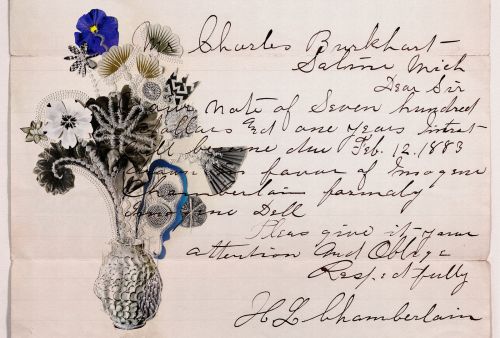 Charles Burkhart
Saline Mich
Dear Sir
Note of Seven hundred
Dollars and one years
due Feb. 12. 1883
in favor of Imogene
Chamberlain formaly
Dell
Pleas give it your
attention and Oblige
Respectfully
H L Chamberlain